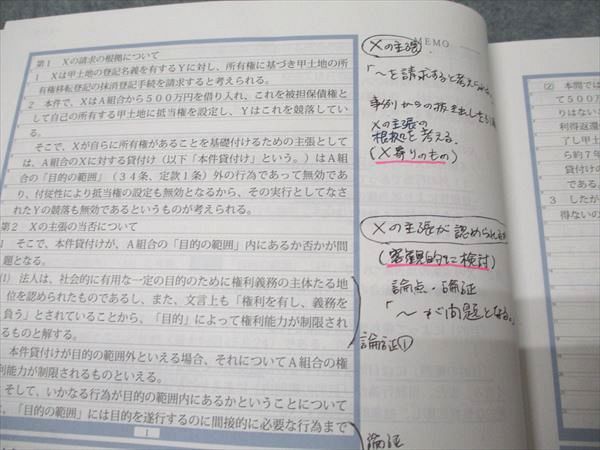 第1 Xの請求の根拠について
1 Xは甲土地の登記名義を有するYに対し、所有権に基づき甲土地の所
有権移転登記の抹消登記手続を請求すると考えられる。
2 本件で、XはA組合から500万円を借り入れ、これを被担保債権と
して自己の所有する甲土地に抵当権を設定し、Yはこれを競落してい
る。
そこで、Xが自らに所有権があることを基礎付けるための主張として
は、A組合のXに対する貸付け(以下「本件貸付け」という。)はA組
合の「目的の範囲」(34条、定款1条)外の行為であって無効であ
り、付従性により抵当権の設定も無効となるから、その実行としてなさ
れたYの競落も無効であるというものが考えられる。
第2 Xの主張の当否について
1 そこで、本件貸付けが、A組合の「目的の範囲」内にあるか否かが問
題となる。
(1) 法人は、社会的に有用な一定の目的のために権利義務の主体たる地
位を認められたものであるし、また、文言上も「権利を有し、義務を
負う」とされていることから、「目的」によって権利能力が制限され
るものと解する。
本件貸付けが目的の範囲外といえる場合、それについてA組合の権
利能力が制限されるものといえる。
そして、いかなる行為が目的の範囲内にあるかということについて
、「目的の範囲」には目的を遂行するのに間接的に必要な行為まで
1
MEMO
Xの主張
「〜を請求すると考えられる
事例からの抜き出しをし
Xの主張の
根拠を考える.
(X寄りのもの)
Xの主張が認められるか
(客観的に検討)
論点・論証
「〜が問題となる。
論証①
論証
(2) 本問では
て500万
りはないし
利得返還
了し甲土
ら約7年
貸付けの
である。
3 したが
得ないの